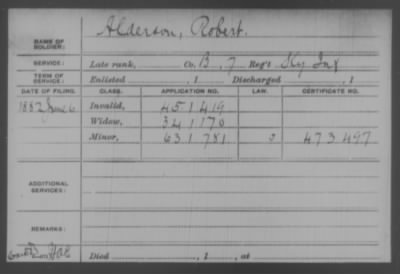 NAME OF SOLDIER: Alderson, Robert.
SERVICE: Late rank, Co. B, 7 Reg't Ky Inf
TERM OF SERVICE: Enlisted , 1 Discharged , 1
DATE OF FILING. CLASS. APPLICATION NO. LAW. CERTIFICATE NO.
1882 June 6 Invalid, 451419
Widow, 341170
Minor, 631781 473.497
ADDITIONAL SERVICES:
REMARKS:
Died , 1 , at